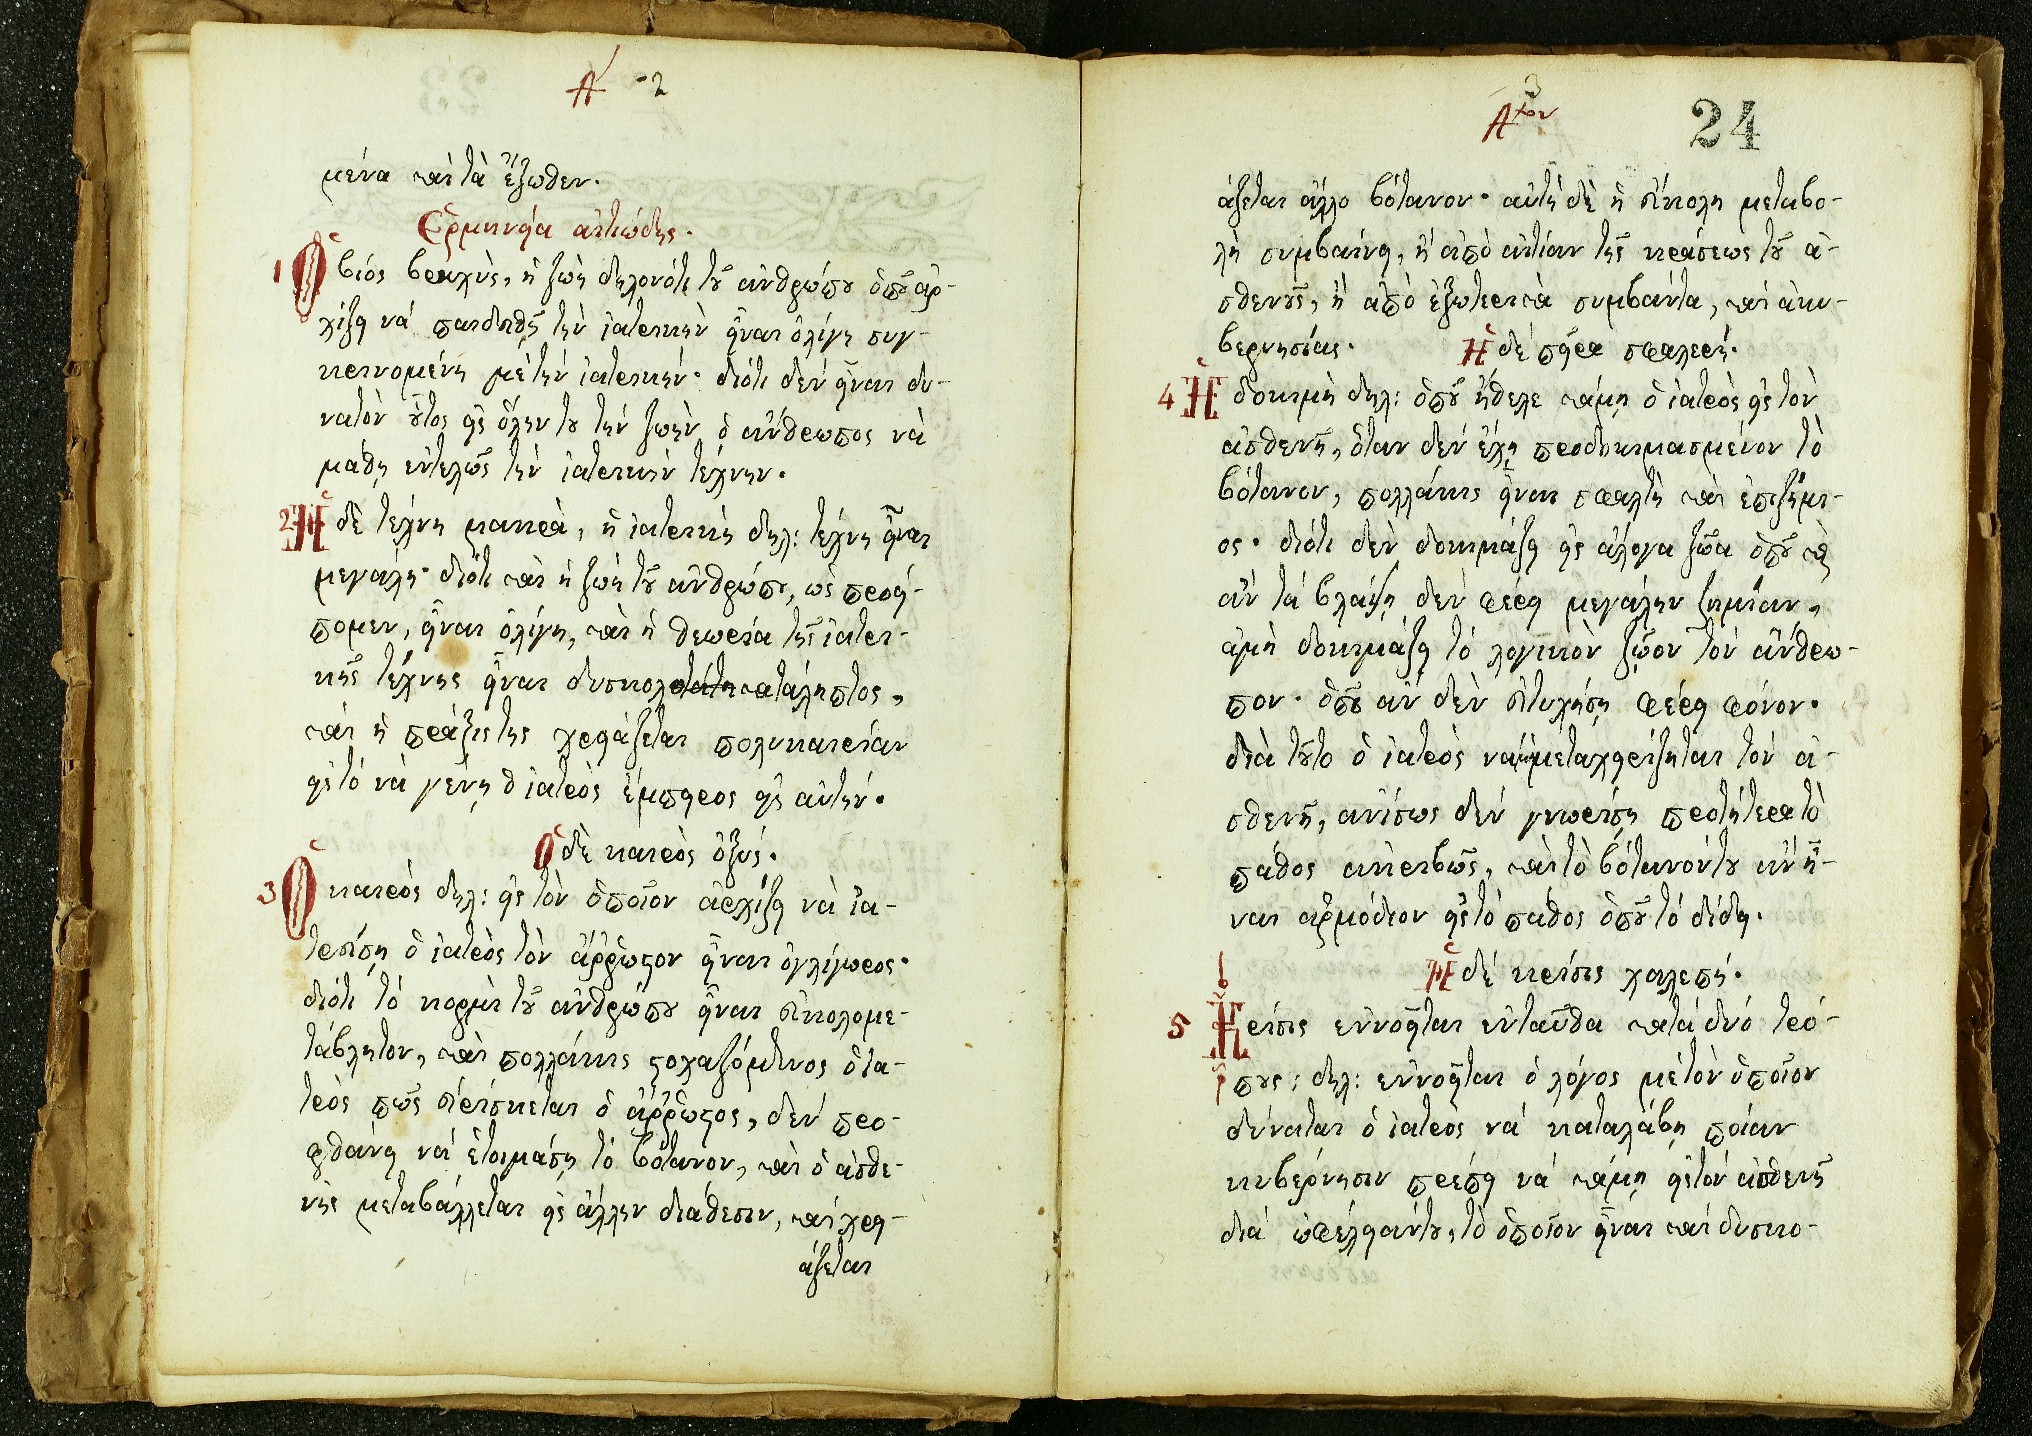 Α´ 2
μένα καὶ τὰ ἔξωθεν.
Ἑρμηνεία αἰτιώδης.
1 Ὁ βίος βραχὺς, ἡ ζωὴ δηλονότι τοῦ ἀνθρώπου ὁποῦ ἀρ-
χίζει νὰ παιδευθῇ τὴν ἰατρικὴν εἶναι ὀλίγη συγ-
κρινομένη μὲ τὴν ἰατρικήν· διότι δὲν εἶναι δυ-
νατὸν οὕτος εἰς ὅλην του τὴν ζωὴν ὁ ἄνθρωπος νὰ
μάθῃ ἐντελῶς τὴν ἰατρικὴν τέχνην.
2 Ἡ δὲ τέχνη μακρὰ, ἡ ἰατρικὴ δηλ: τέχνη εἶναι
μεγάλη· διότι καὶ ἡ ζωὴ τοῦ ἀνθρώπου, ὡς προεί-
πομεν, εἶναι ὀλίγη, καὶ ἡ θεωρία τῆς ἰατρι-
κῆς τέχνης εἶναι δυσκολοκατάληπτος,
καὶ ἡ πράξις της χρειάζεται πολυκαιρίαν
εἰς τὸ νὰ γένῃ ὁ ἰατρὸς ἔμπειρος εἰς αὐτήν.
Ὁ δὲ καιρὸς ὀξύς.
3 Ὁ καιρὸς δηλ: εἰς τὸν ὁποῖον ἀρχίζει νὰ ἰα-
τρεύσῃ ὁ ἰατρὸς τὸν ἄῤῥωστον εἶναι ὀγλίγωρος·
διότι τὸ κορμὶ τοῦ ἀνθρώπου εἶναι εὐκολομε-
τάβλητον, καὶ πολλάκις στοχαζόμενος ὁ ἰα-
τρὸς πῶς εὑρίσκεται ὁ ἄῤῥωστος, δὲν προ-
φθάνει νὰ ἑτοιμάσῃ τὸ βότανον, καὶ ὁ ἀσθε-
νὴς μεταβάλλεται εἰς ἄλλην διάθεσιν, καὶ χρει-
άζεται
Α^τον 3
24
άζεται ἄλλο βότανον· αὐτὴ δὲ ἡ εὔκολη μεταβο-
λὴ συμβαίνει, ἢ ἀπὸ αἰτίαν τῆς κράσεως τοῦ ἀ-
σθενοῦς, ἢ ἀπὸ ἐξωτερικὰ συμβάντα, καὶ ἀκυ-
βερνησίας. Ἡ δὲ πεῖρα σφαλερή.
4 Ἡ δοκιμὴ δηλ: ὁποῦ ἤθελε κάμῃ ὁ ἰατρὸς εἰς τὸν
ἀσθενῆ, ὅταν δὲν ἔχῃ προδοκιμασμένον τὸ
βότανον, πολλάκις εἶναι σφαλτὴ καὶ ἐπιζήμι-
ος· διότι δὲν δοκιμάζει εἰς ἄλογα ζῶα ὁποῦ καὶ
ἂν τὰ βλάψῃ δὲν φέρει μεγάλην ζημίαν,
ἀμὴ δοκιμάζει τὸ λογικὸν ζῶον τὸν ἄνθρω-
πον· ὁποῦ ἂν δὲν εὐτυχήσῃ φέρει φόνον·
διὰ τοῦτο ὁ ἰατρὸς νὰ μὴ μεταχειρίζηται τὸν ἀ-
σθενῆ, ἀνίσως δὲν γνωρίσῃ προτήτερα τὸ
πάθος ἀκριβῶς, καὶ τὸ βότανόν του ἂν εἶ-
ναι ἁρμόδιον εἰς τὸ πάθος ὁποῦ τὸ δίδει.
Ἡ δὲ κρίσις χαλεπή.
5 Κρίσις ἐννοεῖται ἐνταῦθα κατὰ δυό τρό-
πους: δηλ: ἐννοεῖται ὁ λόγος μὲ τὸν ὁποῖον
δύναται ὁ ἰατρὸς νὰ καταλάβῃ ποίαν
κυβέρνησιν πρέπει νὰ κάμῃ εἰς τὸν ἀσθενῆ
διὰ ὠφέλειάν του, τὸ ὁποῖον εἶναι καὶ δυσκο-